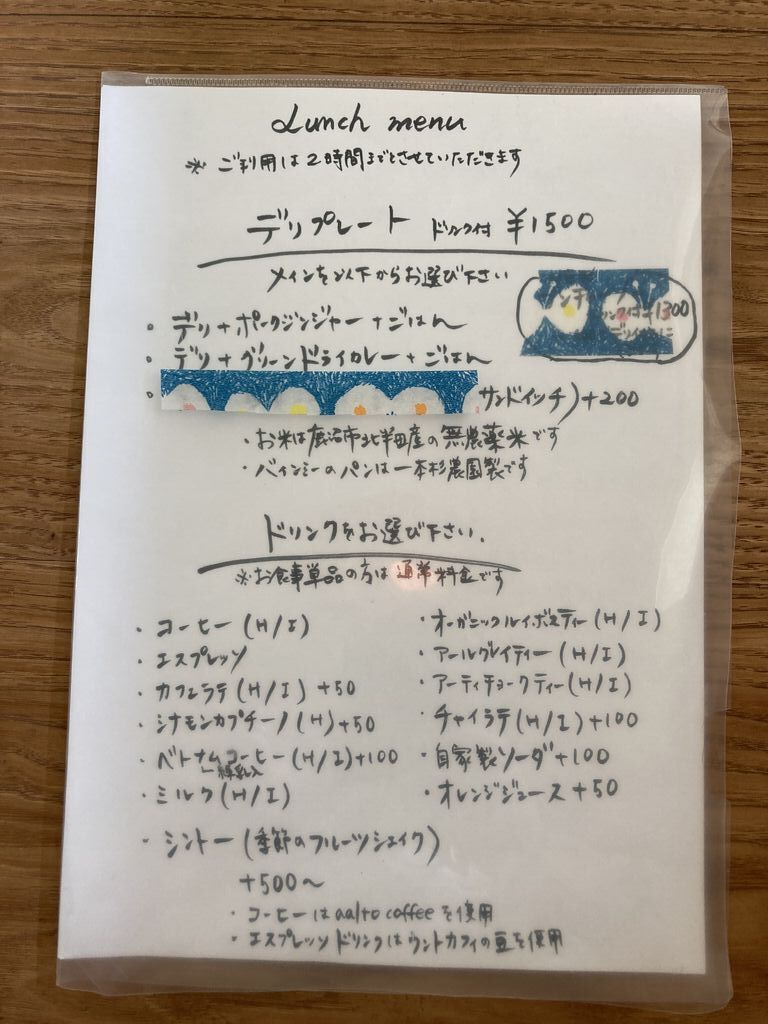 Lunch menu
※ ご利用は2時間までとさせていただきます
デリプレート ドリンク付 ¥1500
メインを以下からお選び下さい
・デリ+ポークジンジャー+ごはん
・デリ+グリーンドライカレー+ごはん
・ サンドイッチ)+200
+1300
・お米は鹿沼市北半田産の無農薬米です
・バインミーのパンは一本杉農園製です
ドリンクをお選び下さい.
※お食事単品の方は通常料金です
・コーヒー(H/I)
・エスプレッソ
・カフェラテ(H/I)+50
・シナモンカプチーノ(H)+50
・ベトナムコーヒー(H/I)+100
練乳入
・ミルク(H/I)
・オーガニックルイボスティー(H/I)
・アールグレイティー(H/I)
・アーティチョークティー(H/I)
・チャイラテ(H/I)+100
・自家製ソーダ+100
・オレンジジュース+50
・シントー(季節のフルーツシェイク)
+500〜
・コーヒーはaalto coffeeを使用
・エスプレッソドリンクはウントカフィの豆を使用